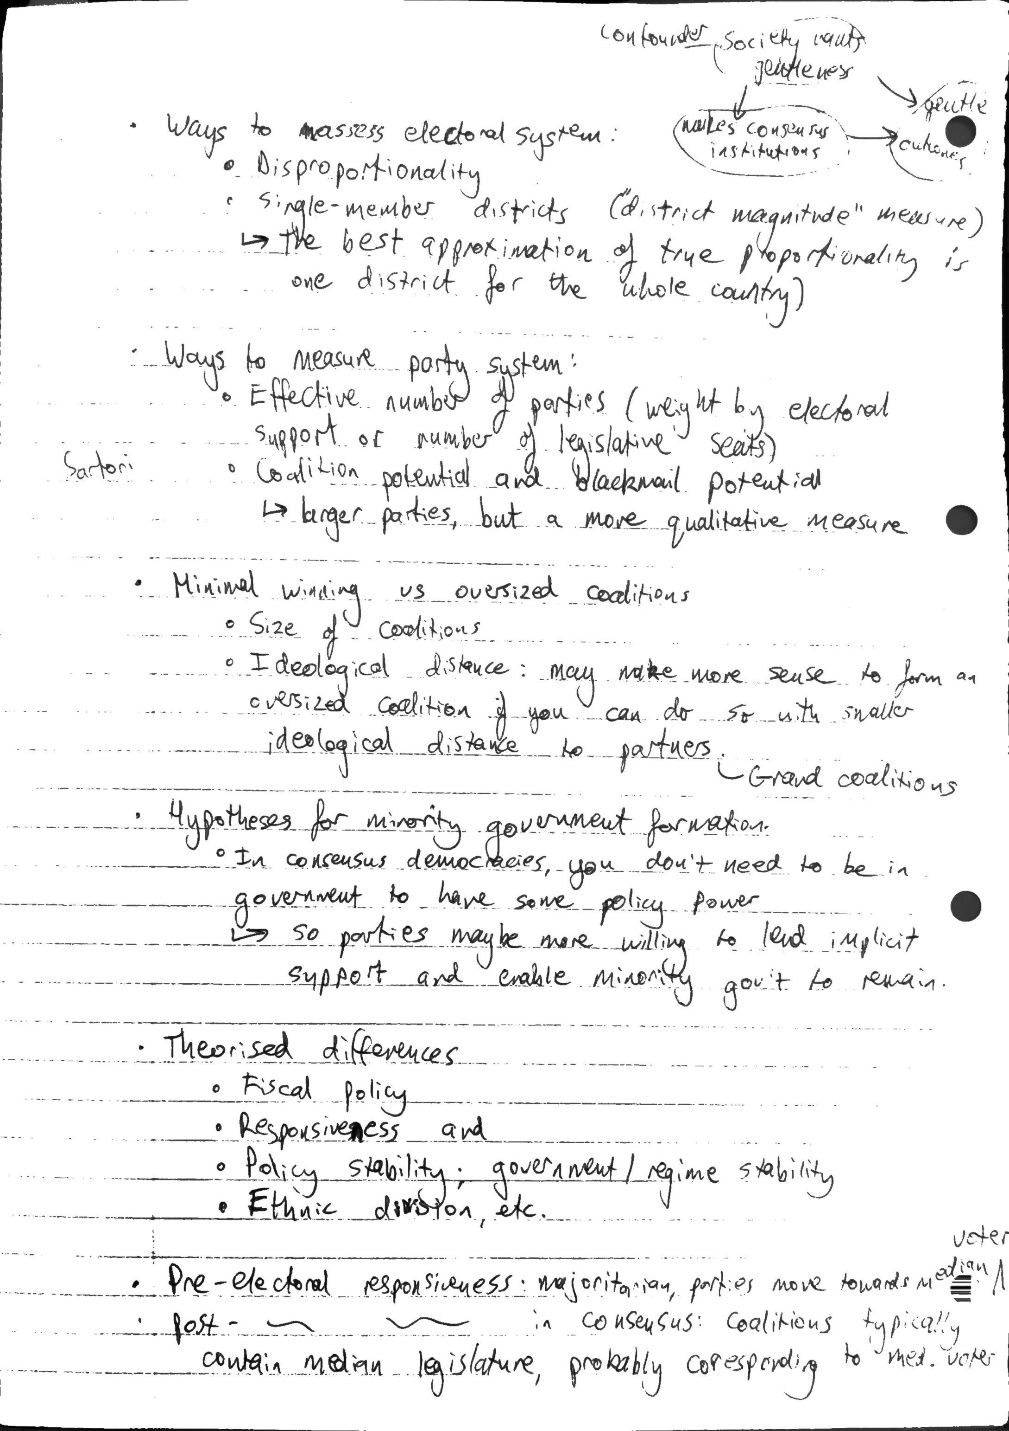 confounder society wants
gentleness
gentle
outcomes
makes consensus
institutions
• Ways to assess electoral system:
◦ Disproportionality
◦ Single-member districts ("district magnitude" measure)
↳ the best approximation of true proportionality is
one district for the whole country)
• Ways to measure party system:
◦ Effective number of parties (weight by electoral
support or number of legislative seats)
Sartori
◦ Coalition potential and blackmail potential
↳ larger parties, but a more qualitative measure
• Minimal winning vs oversized coalitions
◦ Size of coalitions
◦ Ideological distance: may make more sense to form an
oversized coalition if you can do so with smaller
ideological distance to partners.
Grand coalitions
• Hypotheses for minority government formation.
◦ In consensus democracies, you don't need to be in
government to have some policy power
↳ so parties maybe more willing to lend implicit
support and enable minority gov't to remain.
• Theorised differences
◦ Fiscal policy
◦ Responsiveness and
◦ Policy stability; government/regime stability
◦ Ethnic division, etc.
voter
• Pre-electoral responsiveness: majoritarian, parties move towards median
• Post- in consensus: Coalitions typically
contain median legislature, probably coresponding to med. voter